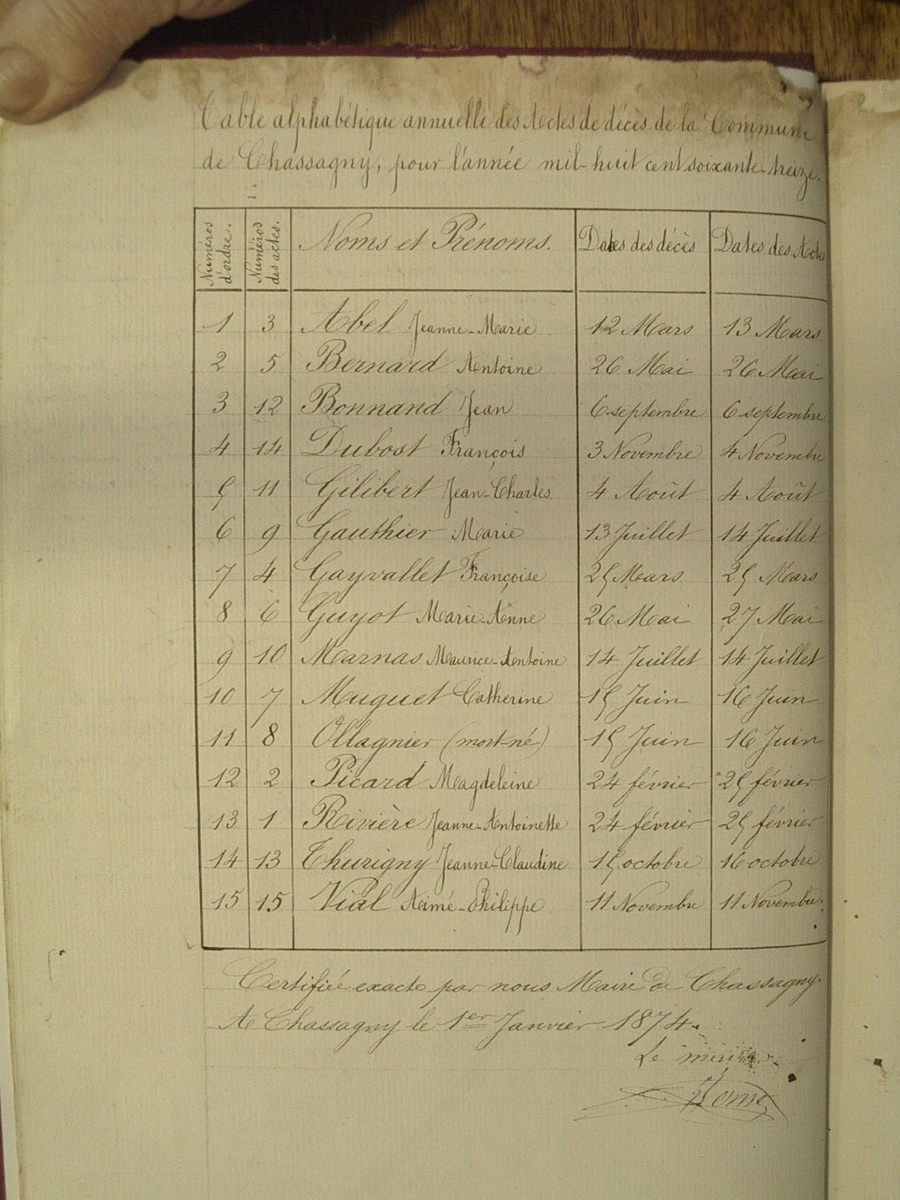 Table alphabétique annuelle des Actes de décès de la Commune
de Chassagny, pour l'année mil-huit cent soixante-treize.
Numéros d'ordre. Numéros des actes. Noms et Prénoms. Dates des décès Dates des Actes
1 3 Abel Jeanne-Marie 12 Mars 13 Mars
2 5 Bernard Antoine 26 Mai 26 Mai
3 12 Bonnand Jean 6 septembre 6 septembre
4 14 Dubost François 3 Novembre 4 Novembre
5 11 Gilibert Jean-Charles 4 Août 4 Août
6 9 Gauthier Marie 13 Juillet 14 Juillet
7 4 Gayvallet Françoise 25 Mars 25 Mars
8 6 Guyot Marie-Anne 26 Mai 27 Mai
9 10 Marnas Maurice-Antoine 14 Juillet 14 Juillet
10 7 Muguet Catherine 15 Juin 16 Juin
11 8 Ollagnier (mort-né) 15 Juin 16 Juin
12 2 Picard Magdeleine 24 février 25 février
13 1 Rivière Jeanne-Antoinette 24 février 25 février
14 13 Thurigny Jeanne-Claudine 15 octobre 16 octobre
15 15 Vial Aimé-Philippe 11 Novembre 11 Novembre.
Certifiée exacte par nous Maire de Chassagny.
A Chassagny le 1er Janvier 1874.
Le maire